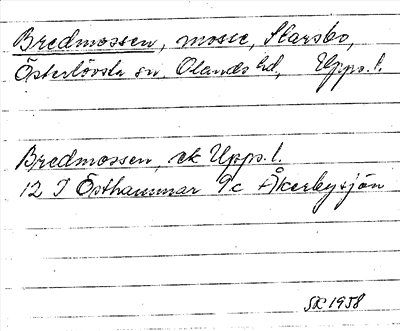 Bredmossen, mosse, Slarsbo,
Österlövsta sn, Olands hd, Upps. l.
Bredmossen, ek Upps. l.
12 I Östhammar 9c Åkerbysjön
SK 1958